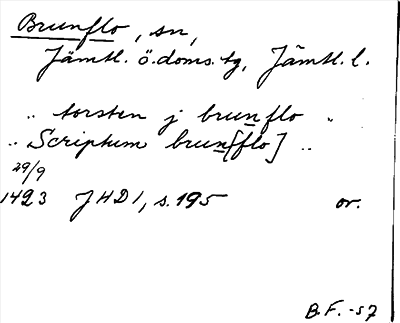 Brunflo, sn,
Jämtl. ö. doms. tg, Jämtl. l.
„ torsten j brunflo „
„ Scriptum brun[flo] „
29/9
1423 JHD1, s. 195 or.
B.F. -57